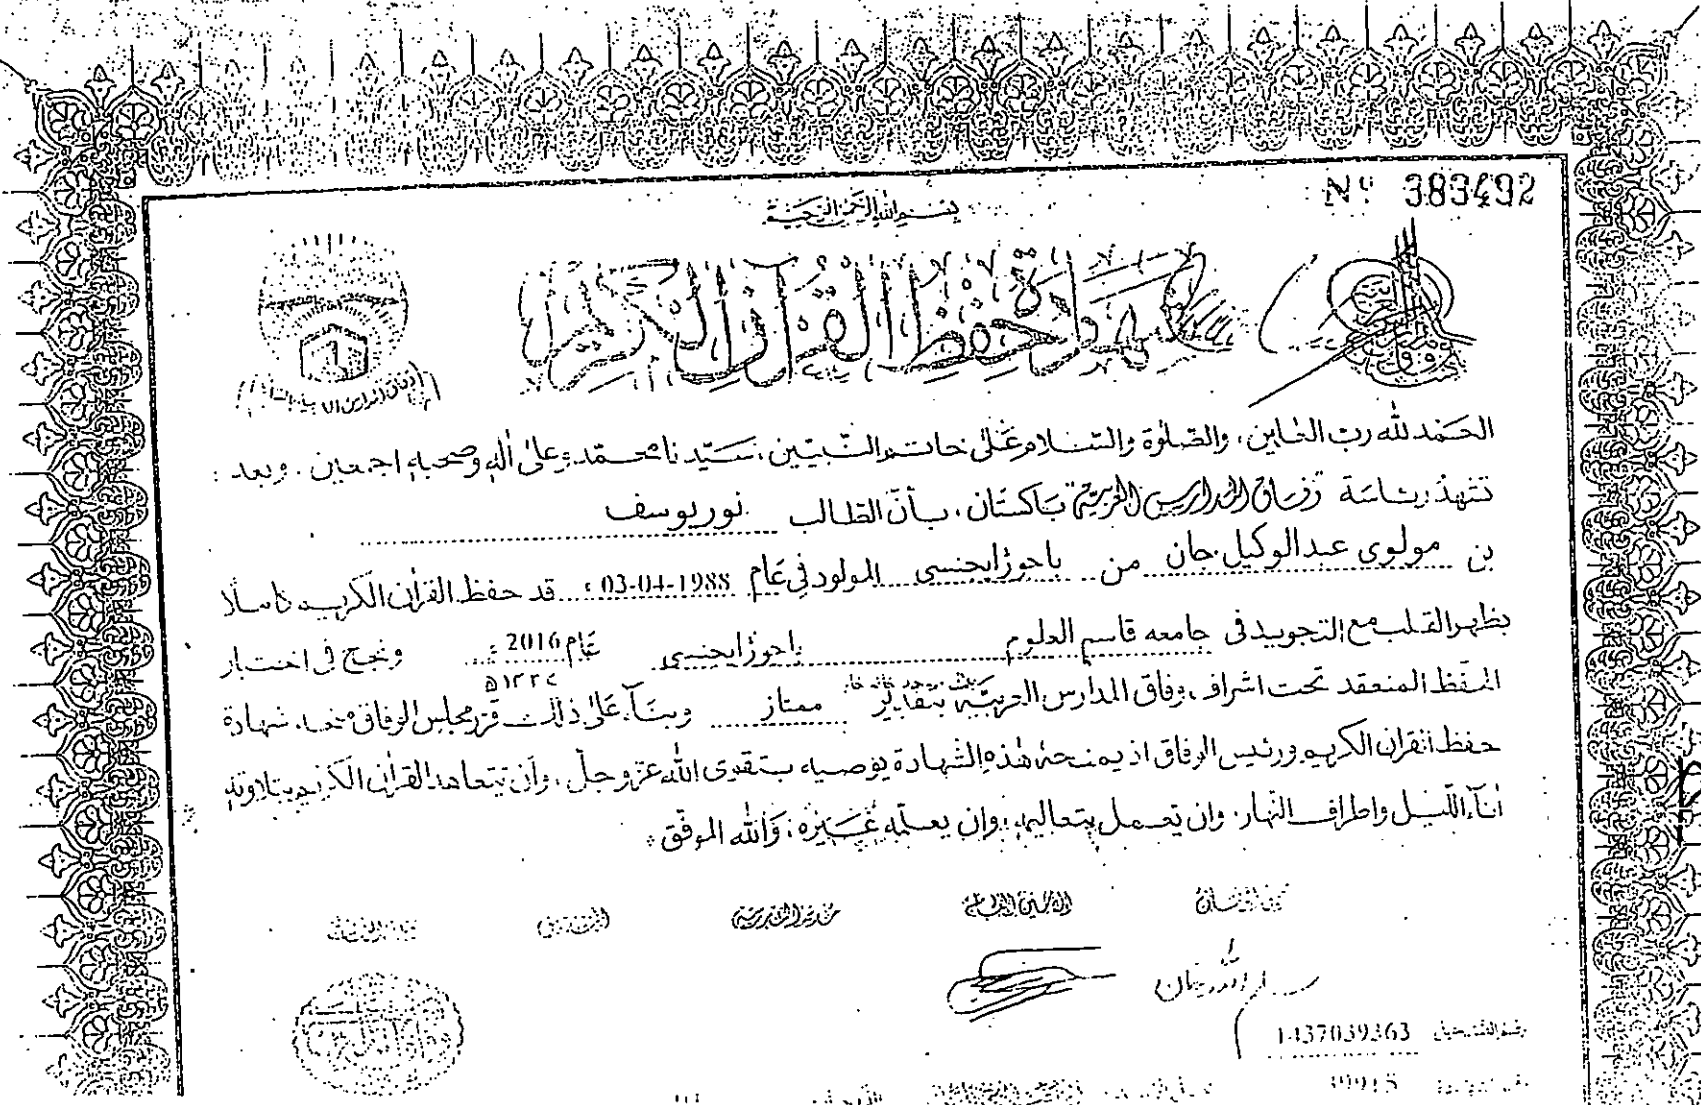 بسم الله الرحمن الرحيم
Nº 383492
شهادة حفظ القرآن الكريم
الحمد لله رب العالمين، والصلوة والسلام على خاتم النبيين، سيدنا محمد وعلى أله وصحبه اجمعين . وبعد :
تشهد رئاسة وفاق المدارس العربية باكستان، بأن الطالب نور يوسف
بن مولوى عبدالوكيل جان من باجوڑ ايجنسى المولود في عام 03-04-1988ء قد حفظ القرأن الكريم كاملا
بظهر القلب مع التجويد فى جامعه قاسم العلوم باجوڑ ايجنسى عام 2016ء ونجح في اختبار
الحفظ المنعقد تحت اشراف وفاق المدارس العربية بتقدير ممتاز وبناء على ذلك قرر مجلس الوفاق منحه شهادة
حفظ القران الكريم ورئيس الوفاق اذ يمنحه هذه الشهادة يوصيه بتقوى الله عز وجل، وأن يتعاهد القرأن الكريم بتلاوته
أناء الليل واطراف النهار، وان يعمل بتعاليمه، وان يعلمه غيره، والله الموفق
رقم التسجيل 1437039363